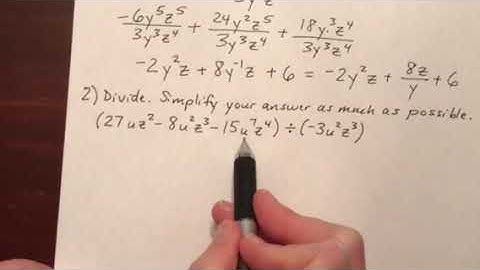 -6y⁵z⁵/3y³z⁴ + 24y²z⁵/3y³z⁴ + 18y³z⁴/3y³z⁴
-2y²z + 8y⁻¹z + 6 = -2y²z + 8z/y + 6
2) Divide. Simplify your answer as much as possible.
(27uz² - 8u²z³ - 15u⁷z⁴) ÷ (-3u²z³)